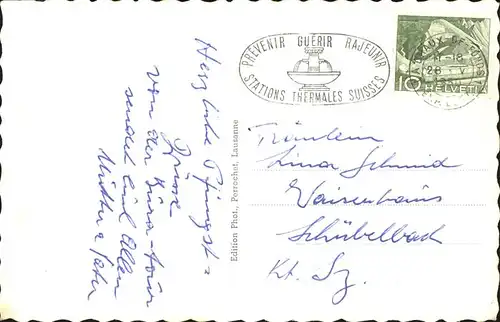 Herzliche Pfingst=
Grüsse
von der Jura-tour
sendet Euch Allen
Mutter & Vater
Edition Phot. Perrochet, Lausanne
PRÉVENIR GUÉRIR RAJEUNIR
STATIONS THERMALES SUISSES
10 HELVETIA
Fräulein
Lina Schmid
Waisenhaus
Schübelbach
Kt. Sz.